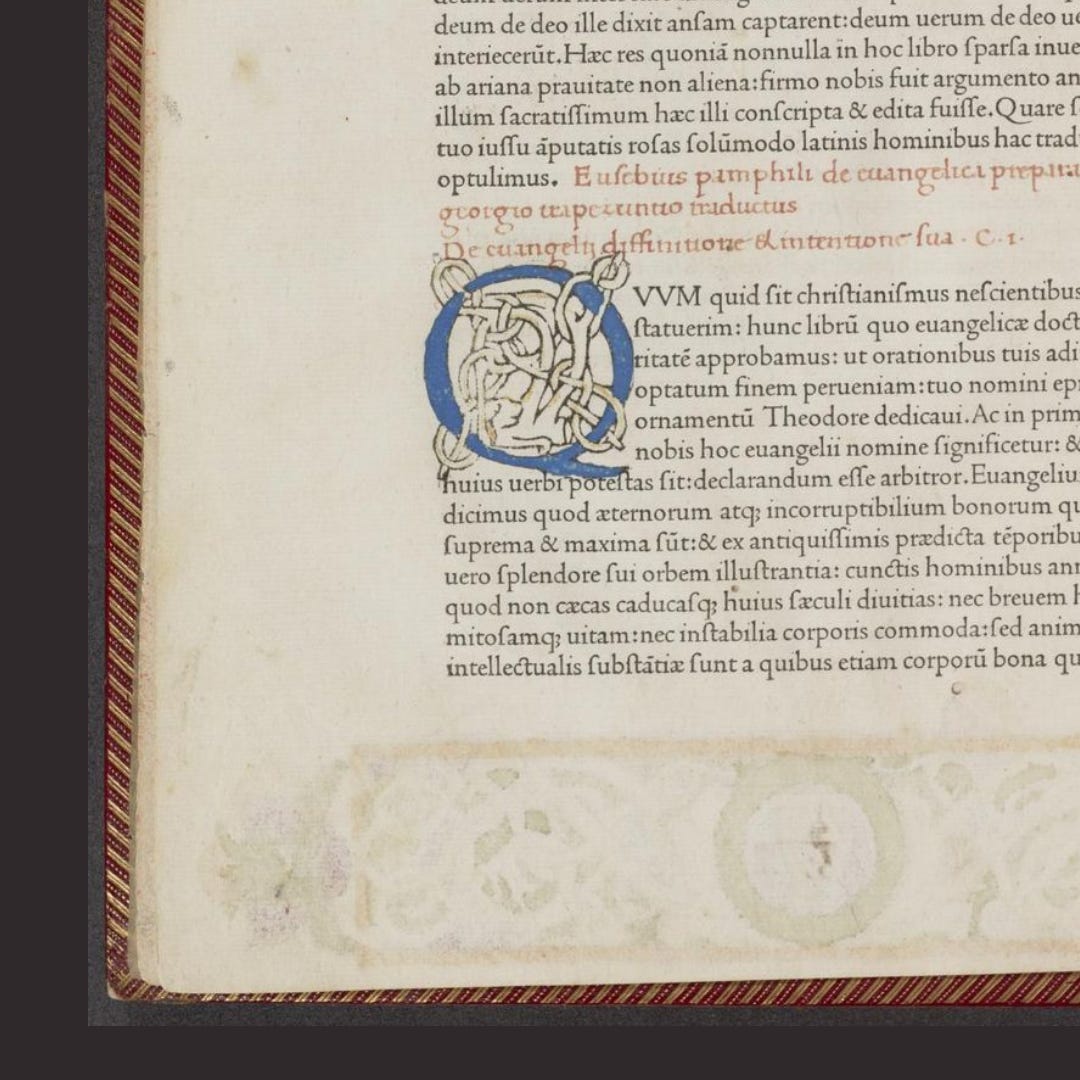 deum de deo ille dixit anſam captarent:deum uerum de deo
interiecerūt.Hæc res quoniā nonnulla in hoc libro ſparſa inue
ab ariana prauitate non aliena:firmo nobis fuit argumento an
illum ſacratiſſimum hæc illi conſcripta & edita fuiſſe.Quare
tuo iuſſu āputatis roſas ſolūmodo latinis hominibus hac trad
optulimus. Euſebius pamphili de euangelica prepara
georgio trapezuntio traductus
De euangelij diffinitione & intentione ſua . C.1.
QVVM quid ſit chriſtianiſmus neſcientibus
ſtatuerim: hunc librū quo euangelicæ doct
ritatē approbamus: ut orationibus tuis adi
optatum finem perueniam:tuo nomini ep
ornamentū Theodore dedicaui.Ac in prim
nobis hoc euangelii nomine ſignificetur: &
huius uerbi poteſtas ſit:declarandum eſſe arbitror.Euangeliu
dicimus quod æternorum atq; incorruptibilium bonorum qu
ſuprema & maxima ſūt:& ex antiquiſſimis prædicta tēporibu
uero ſplendore ſui orbem illuſtrantia: cunctis hominibus ann
quod non cæcas caducaſq; huius ſæculi diuitias: nec breuem
mitoſamq; uitam:nec inſtabilia corporis commoda:ſed anim
intellectualis ſubſtātiæ ſunt a quibus etiam corporū bona qu